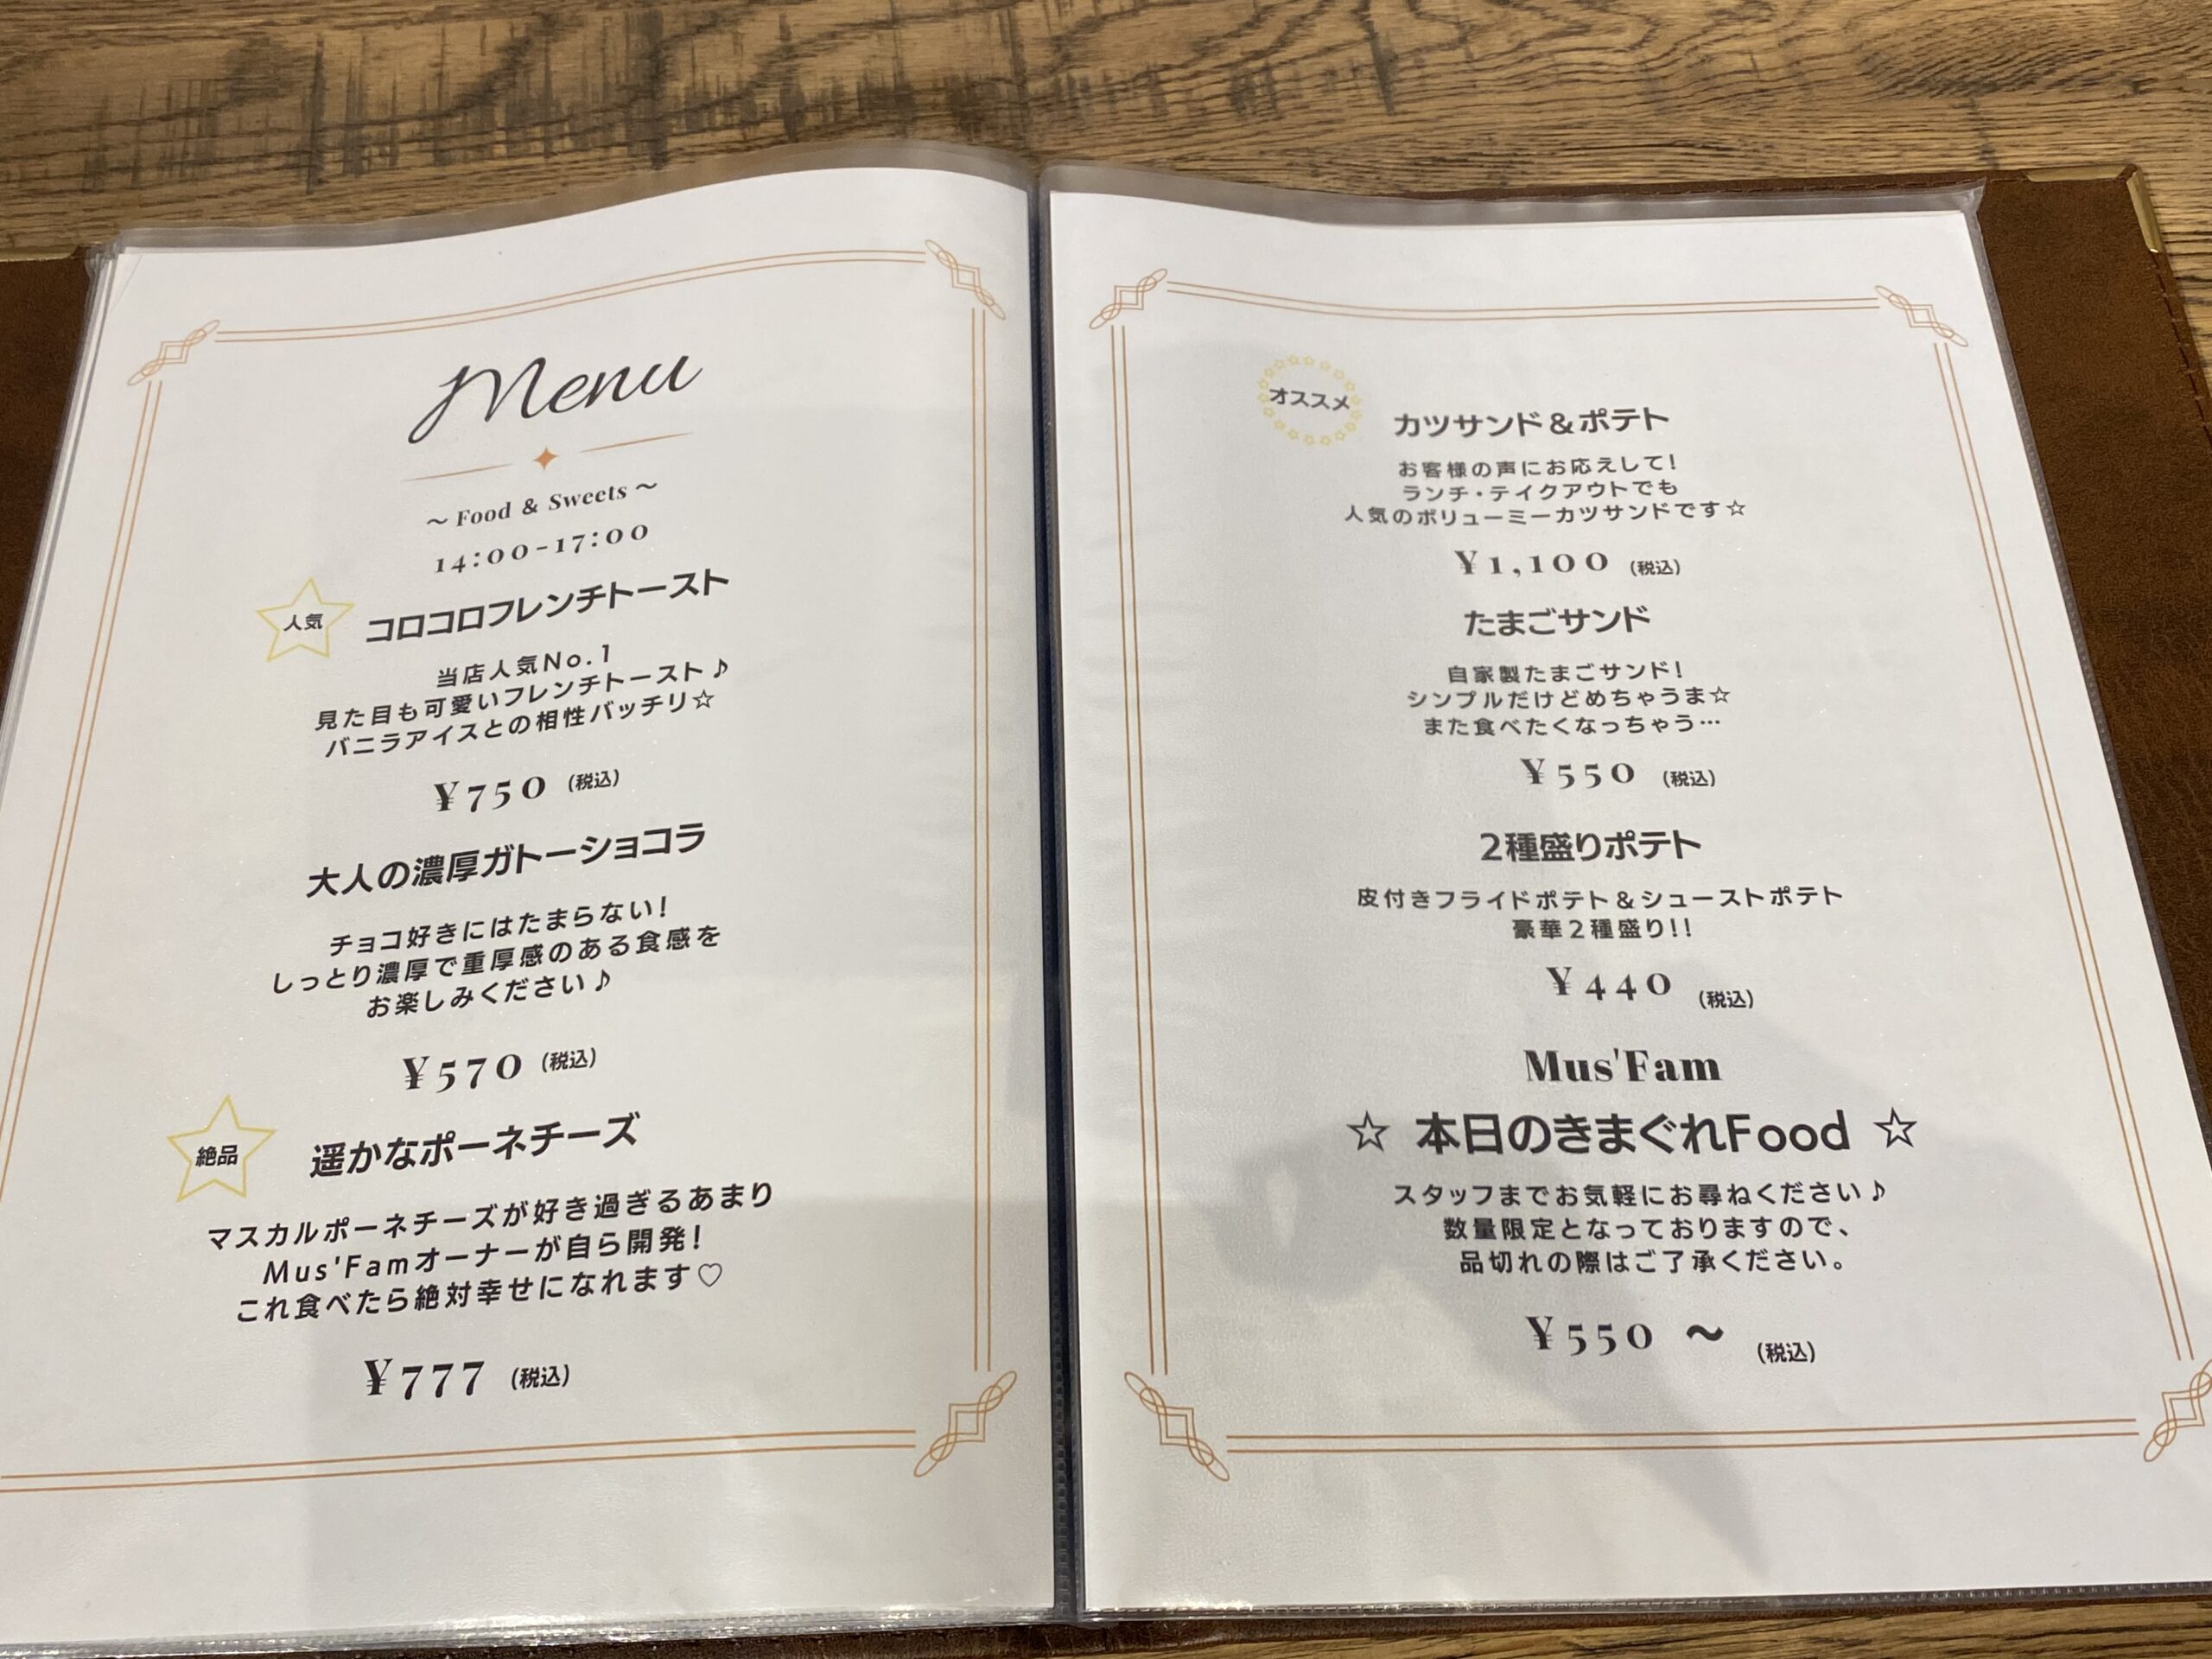 Menu
～Food & Sweets～
14:00-17:00
人気
コロコロフレンチトースト
当店人気No.1
見た目も可愛いフレンチトースト♪
バニラアイスとの相性バッチリ☆
¥750 (税込)
大人の濃厚ガトーショコラ
チョコ好きにはたまらない!
しっとり濃厚で重厚感のある食感を
お楽しみください♪
¥570 (税込)
絶品
遥かなポーネチーズ
マスカルポーネチーズが好き過ぎるあまり
Mus'Famオーナーが自ら開発!
これ食べたら絶対幸せになれます♡
¥777 (税込)
オススメ
カツサンド＆ポテト
お客様の声にお応えして!
ランチ・テイクアウトでも
人気のボリューミーカツサンドです☆
¥1,100 (税込)
たまごサンド
自家製たまごサンド!
シンプルだけどめちゃうま☆
また食べたくなっちゃう…
¥550 (税込)
2種盛りポテト
皮付きフライドポテト＆シューストポテト
豪華2種盛り!!
¥440 (税込)
Mus'Fam
☆ 本日のきまぐれFood ☆
スタッフまでお気軽にお尋ねください♪
数量限定となっておりますので、
品切れの際はご了承ください。
¥550 ～ (税込)